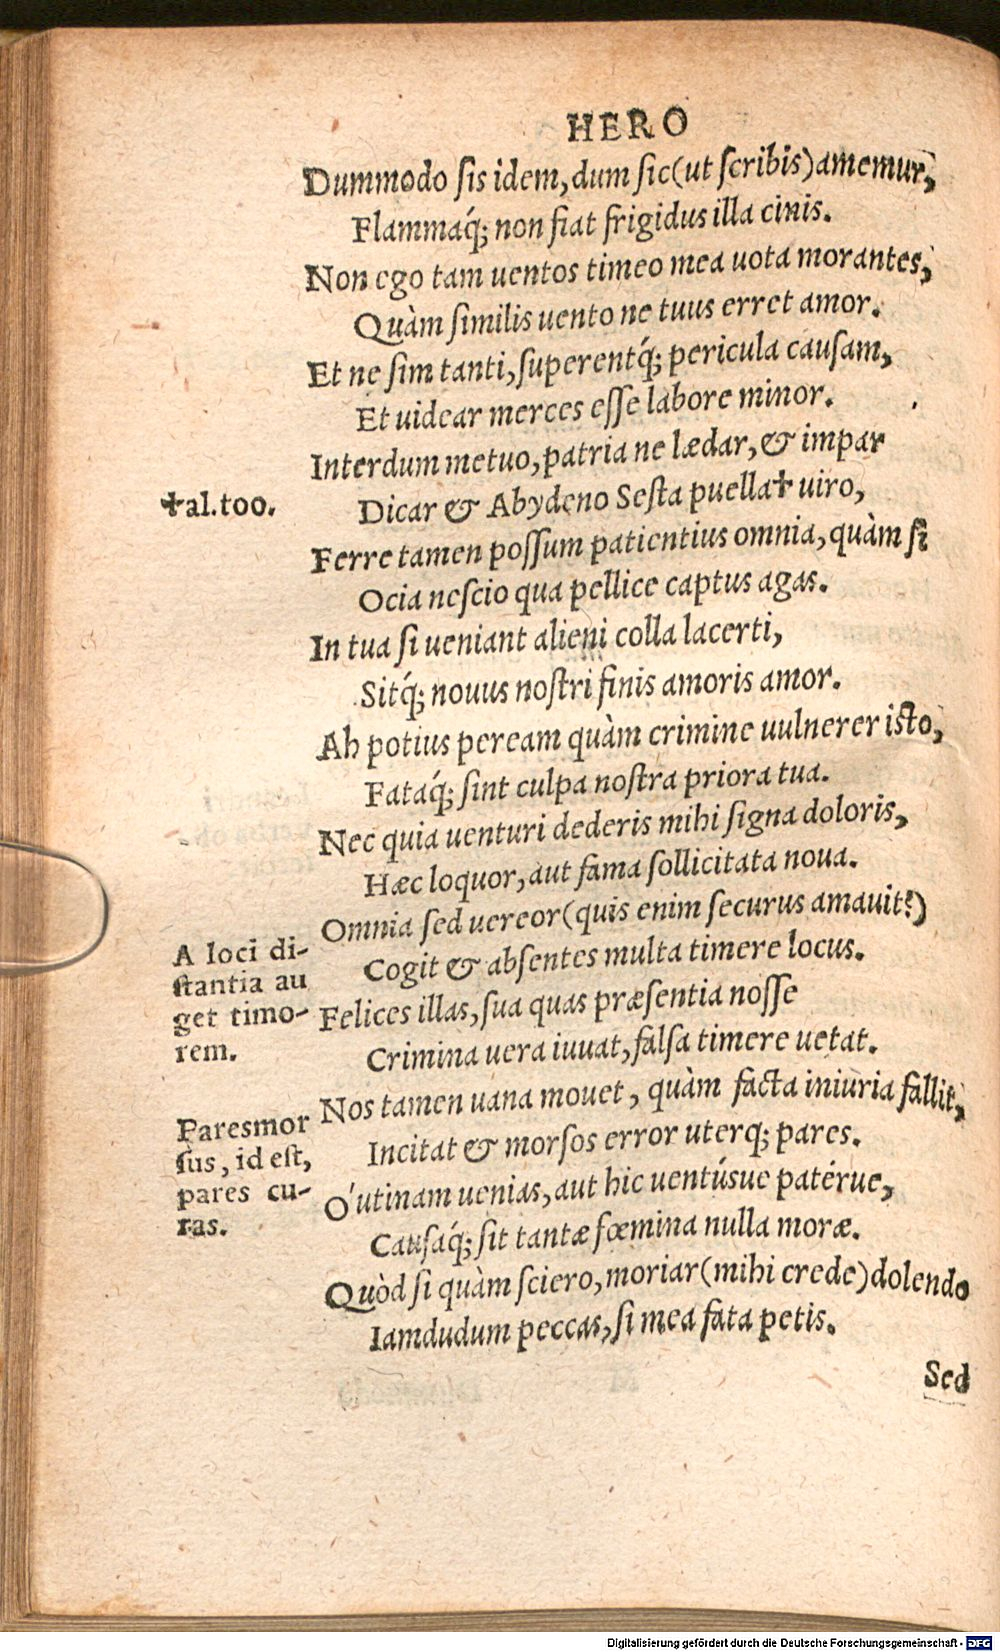 HERO
Dummodo ſis idem, dum ſic(ut ſcribis)amemur,
Flammaq́; non fiat frigidus illa cinis.
Non ego tam uentos timeo mea uota morantes,
Quàm ſimilis uento ne tuus erret amor.
Et ne ſim tanti, ſuperentq́; pericula cauſam,
Et uidear merces eſſe labore minor.
Interdum metuo, patria ne lædar, & impar
✝al.too.
Dicar & Abydeno Seſta puella✝ uiro,
Ferre tamen poſſum patientius omnia, quàm ſi
Ocia neſcio qua pellice captus agas.
In tua ſi ueniant alieni colla lacerti,
Sitq́; nouus noſtri finis amoris amor.
Ah potius peream quàm crimine uulnerer iſto,
Fataq́; ſint culpa noſtra priora tua.
Nec quia uenturi dederis mihi ſigna doloris,
Hæc loquor, aut fama ſollicitata noua.
Omnia ſed uereor(quis enim ſecurus amauit?)
Cogit & abſentes multa timere locus.
A loci di-
ſtantia au
get timo-
rem.
Felices illas, ſua quas præſentia noſſe
Crimina uera iuuat, falſa timere uetat.
Nos tamen uana mouet, quàm facta iniuria fallit,
Incitat & morſos error uterq; pares.
Paresmor
ſus, id eſt,
pares cu-
ras.
O' utinam uenias, aut hic uentúsue patérue,
Cauſaq́; ſit tantæ fœmina nulla moræ.
Quòd ſi quàm ſciero, moriar(mihi crede)dolendo
Iamdudum peccas, ſi mea fata petis.
Sed
Digitalisierung gefördert durch die Deutsche Forschungsgemeinschaft - DFG